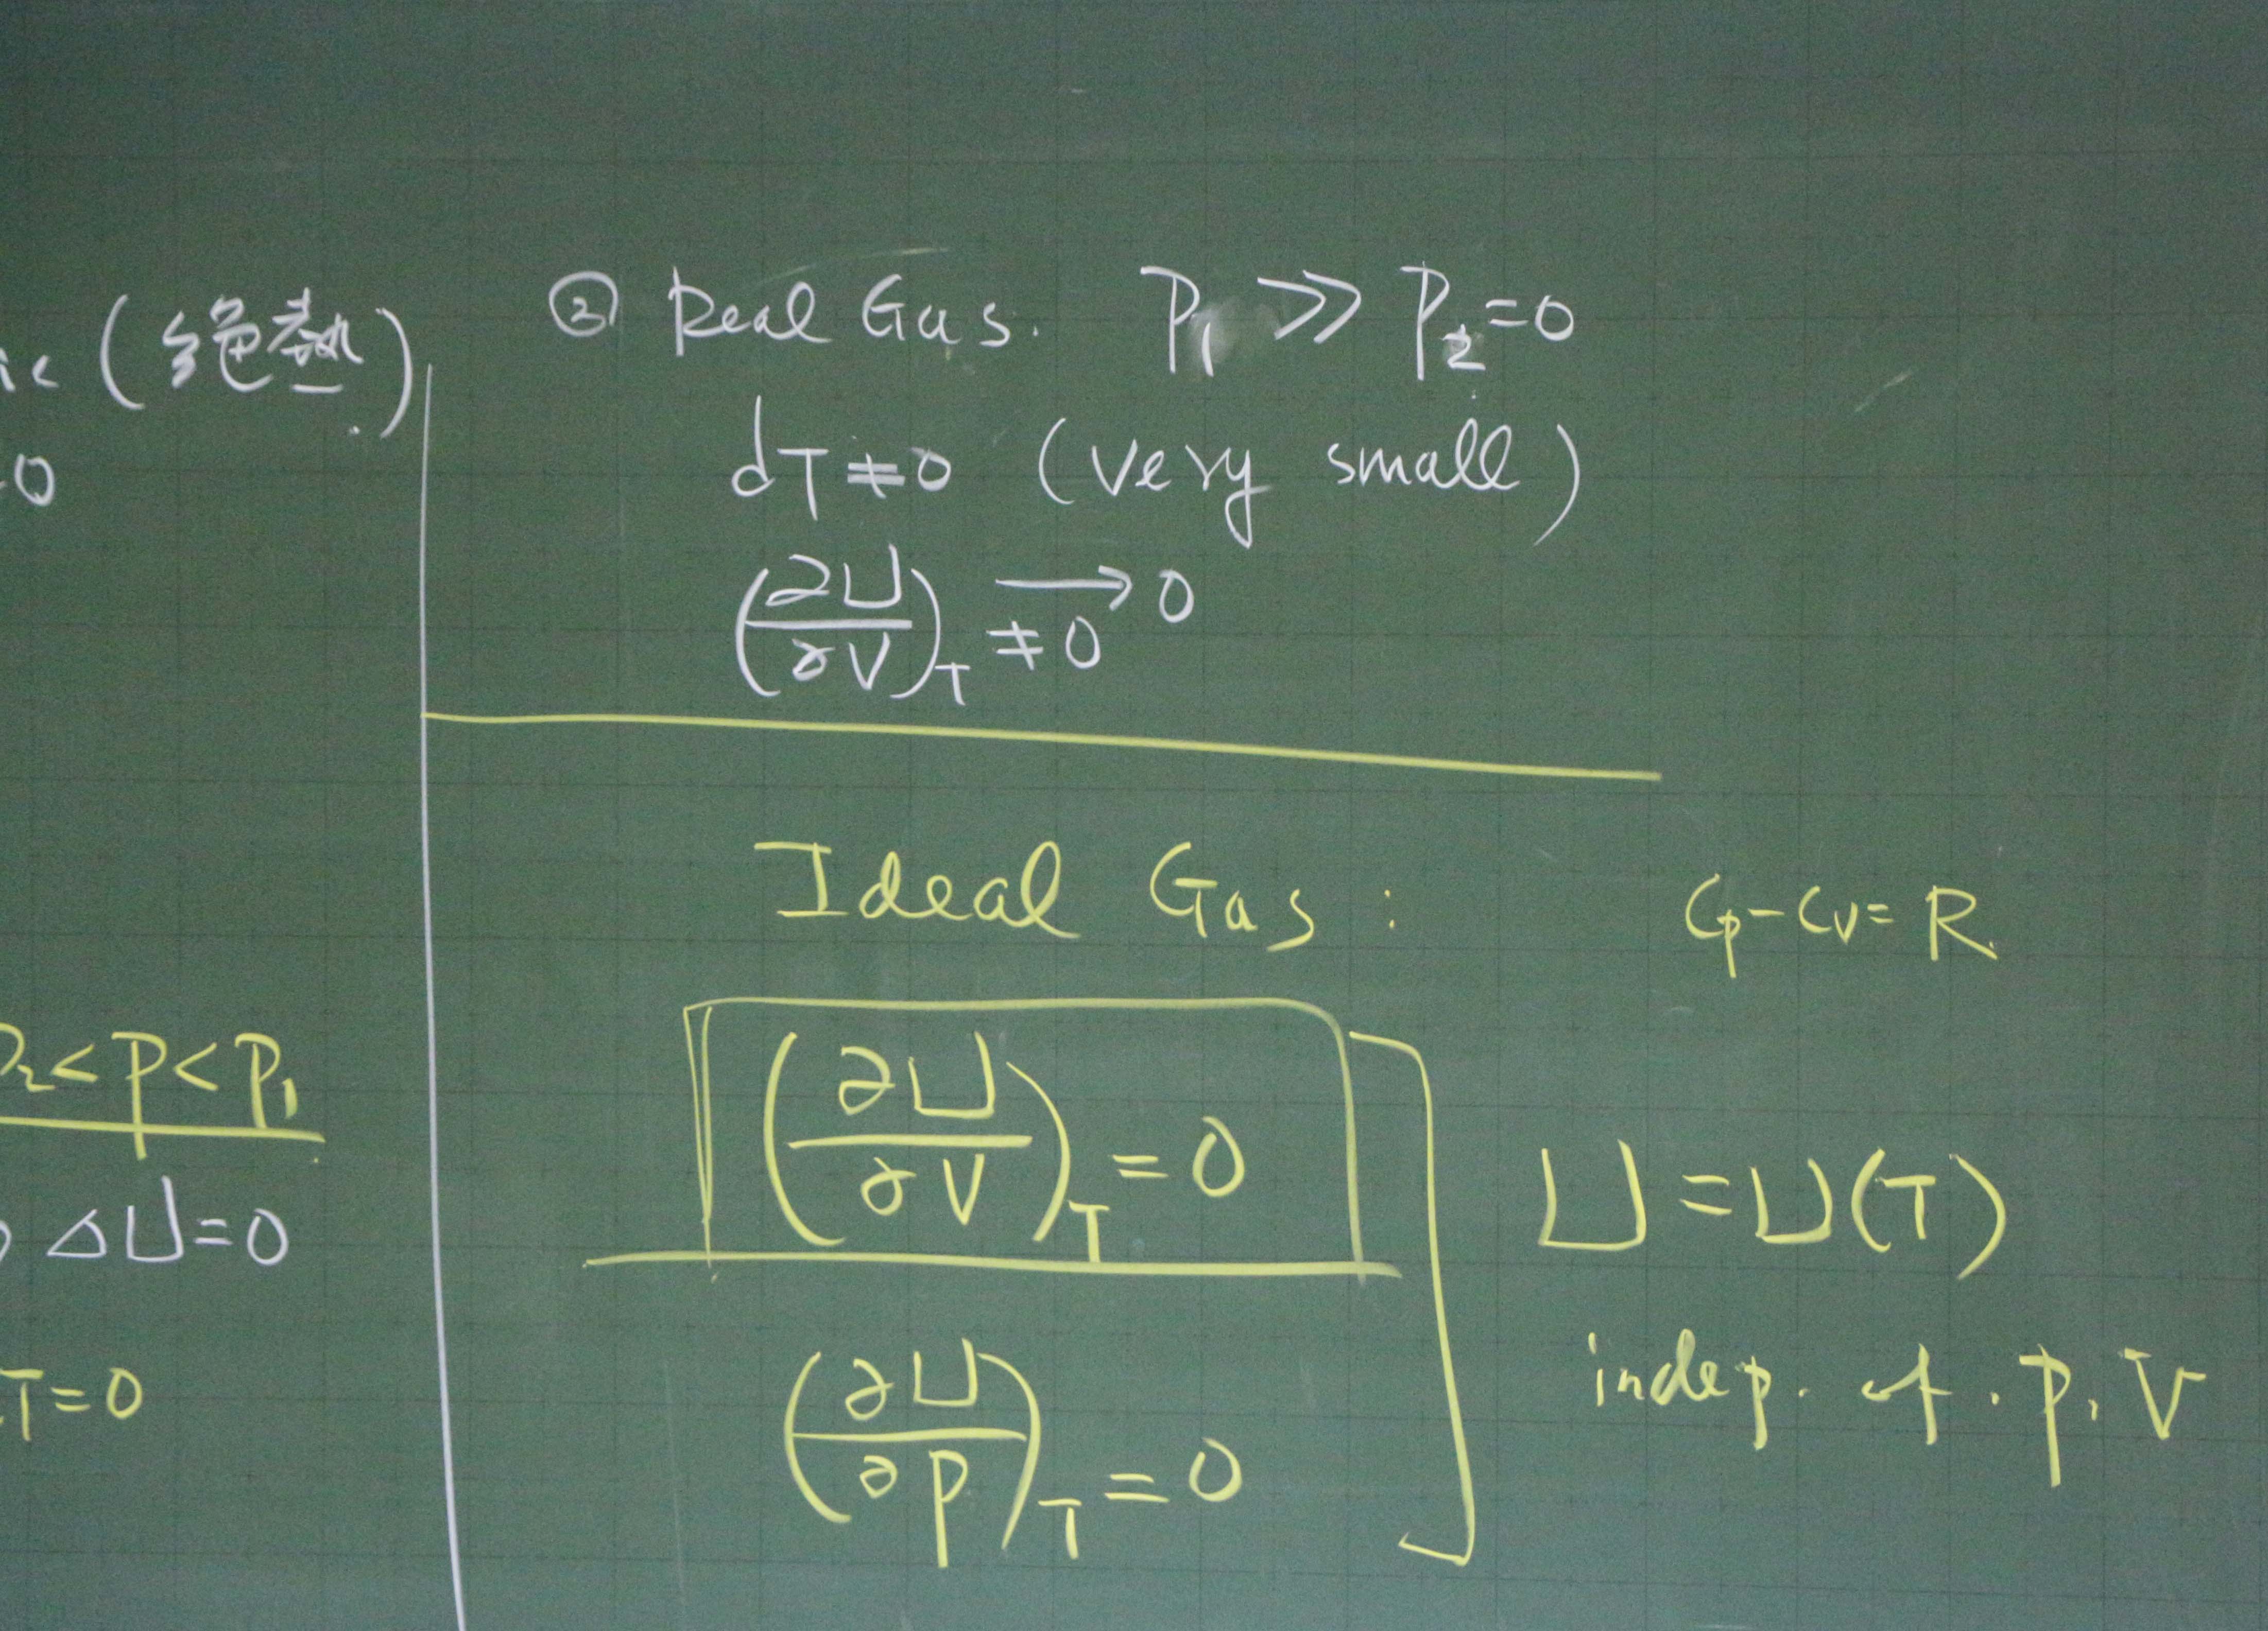 (絕熱)
=0
P₂ < P < P₁
ΔU=0
T=0
② Real Gas. P₁ >> P₂=0
dT≠0 (very small)
(∂U/∂V)_T ≠0 → 0
Ideal Gas : Cp-Cv=R.
(∂U/∂V)_T = 0
(∂U/∂P)_T = 0
U = U(T)
indep. of. P, V